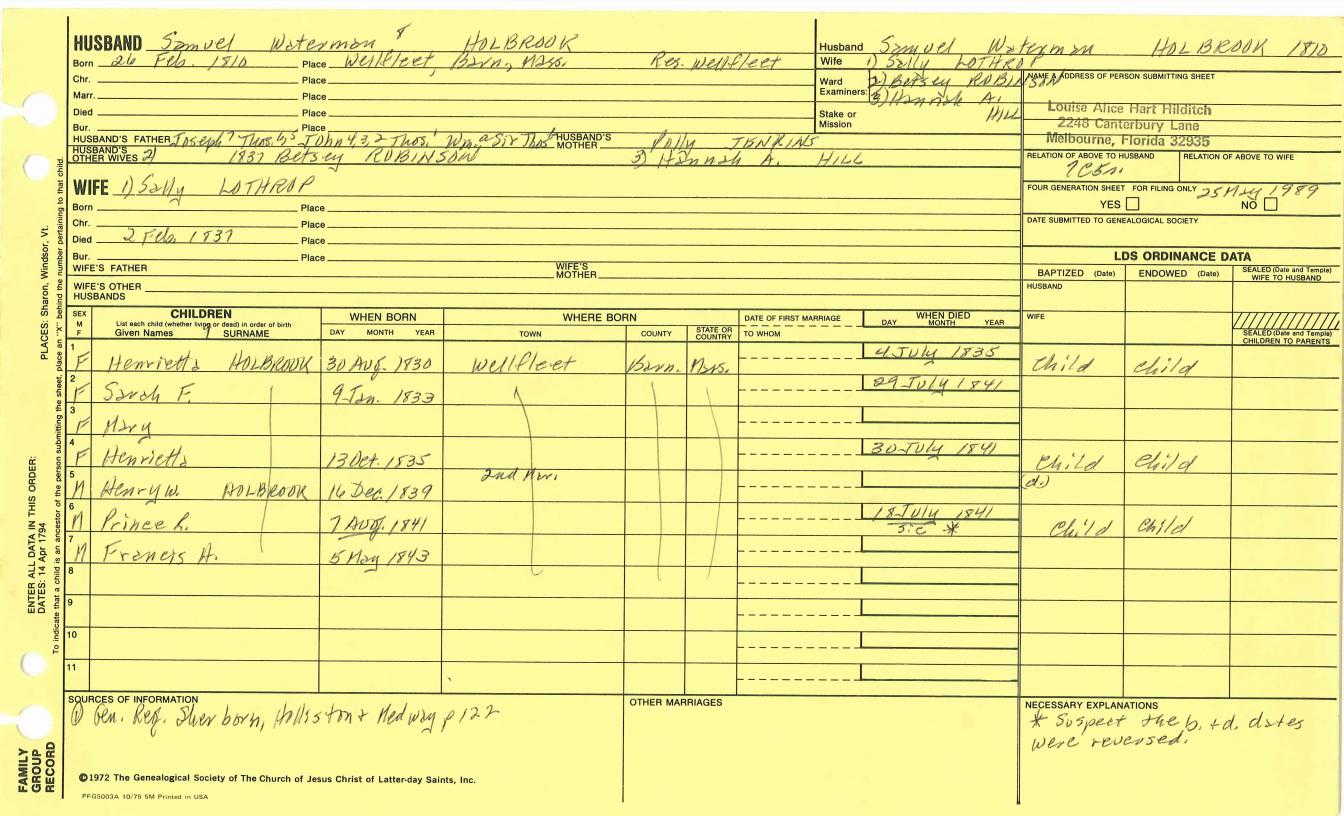 HUSBAND Samuel Waterman 8 HOLBROOK
Born 26 Feb. 1810 Place Wellfleet, Barn, Mass. Res. Wellfleet
Chr. Place
Marr. Place
Died Place
Bur. Place
HUSBAND'S FATHER Joseph 7 Thos. 6,5 John 4,3,2 Thos. 1 Wm. a Sir Thos. b HUSBAND'S MOTHER Polly JENKINS
HUSBAND'S OTHER WIVES 2) 1837 Betsey ROBINSON 3) Hannah A. HILL
Husband Samuel Waterman HOLBROOK 1810
Wife 1) Sally LOTHROP
Ward Examiners: 2) Betsey ROBINSON
3) Hannah A. HILL
Stake or Mission
NAME & ADDRESS OF PERSON SUBMITTING SHEET
Louise Alice Hart Hilditch
2248 Canterbury Lane
Melbourne, Florida 32935
RELATION OF ABOVE TO HUSBAND RELATION OF ABOVE TO WIFE
7C5R.
FOUR GENERATION SHEET FOR FILING ONLY 25 May 1989
YES NO
DATE SUBMITTED TO GENEALOGICAL SOCIETY
WIFE 1) Sally LOTHROP
Born Place
Chr. Place
Died 2 Feb. 1837 Place
Bur. Place
WIFE'S FATHER WIFE'S MOTHER
WIFE'S OTHER HUSBANDS
LDS ORDINANCE DATA
BAPTIZED (Date) ENDOWED (Date) SEALED (Date and Temple) WIFE TO HUSBAND
HUSBAND
WIFE
SEALED (Date and Temple) CHILDREN TO PARENTS
SEX M F CHILDREN WHEN BORN WHERE BORN DATE OF FIRST MARRIAGE WHEN DIED
List each child (whether living or dead) in order of birth
Given Names SURNAME DAY MONTH YEAR TOWN COUNTY STATE OR COUNTRY TO WHOM DAY MONTH YEAR
1 F Henrietta HOLBROOK 30 Aug. 1830 Wellfleet Barn. Mass. 4 July 1835 Child child
2 F Sarah F. 9 Jan. 1833 29 July 1841
3 F Mary
4 F Henrietta 13 Oct. 1835 30 July 1841 Child Child
2nd Mar.
5 M Henry W. HOLBROOK 16 Dec. 1839 (d.)
6 M Prince L. 7 Aug. 1841 18 July 1841 sic * Child Child
7 M Francis A. 5 May 1843
8
9
10
11
SOURCES OF INFORMATION
① Gen. Reg. Sherborn, Holliston & Medway p 122
OTHER MARRIAGES
NECESSARY EXPLANATIONS
* Suspect the b. + d. dates
were reversed.
©1972 The Genealogical Society of The Church of Jesus Christ of Latter-day Saints, Inc.
PFGS003A 10/75 5M Printed in USA
FAMILY GROUP RECORD
ENTER ALL DATA IN THIS ORDER:
DATES: 14 Apr 1794
PLACES: Sharon, Windsor, Vt.
To indicate that a child is an ancestor of the person submitting the sheet, place an "X" behind the number pertaining to that child.